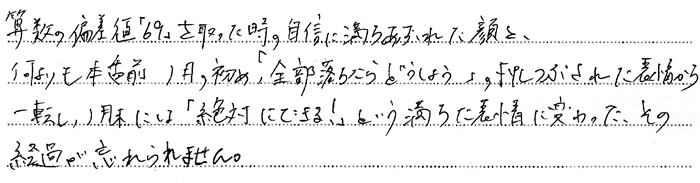 算数の偏差値「69」を取った時の自信に満ちあふれた顔と、
何よりも本番前 1月の初め「全部落ちたらどうしよう」の押しつぶされた表情から
一転し、1月末には「絶対にできる!」という満ちた表情に変わった、その
経過が忘れられません。